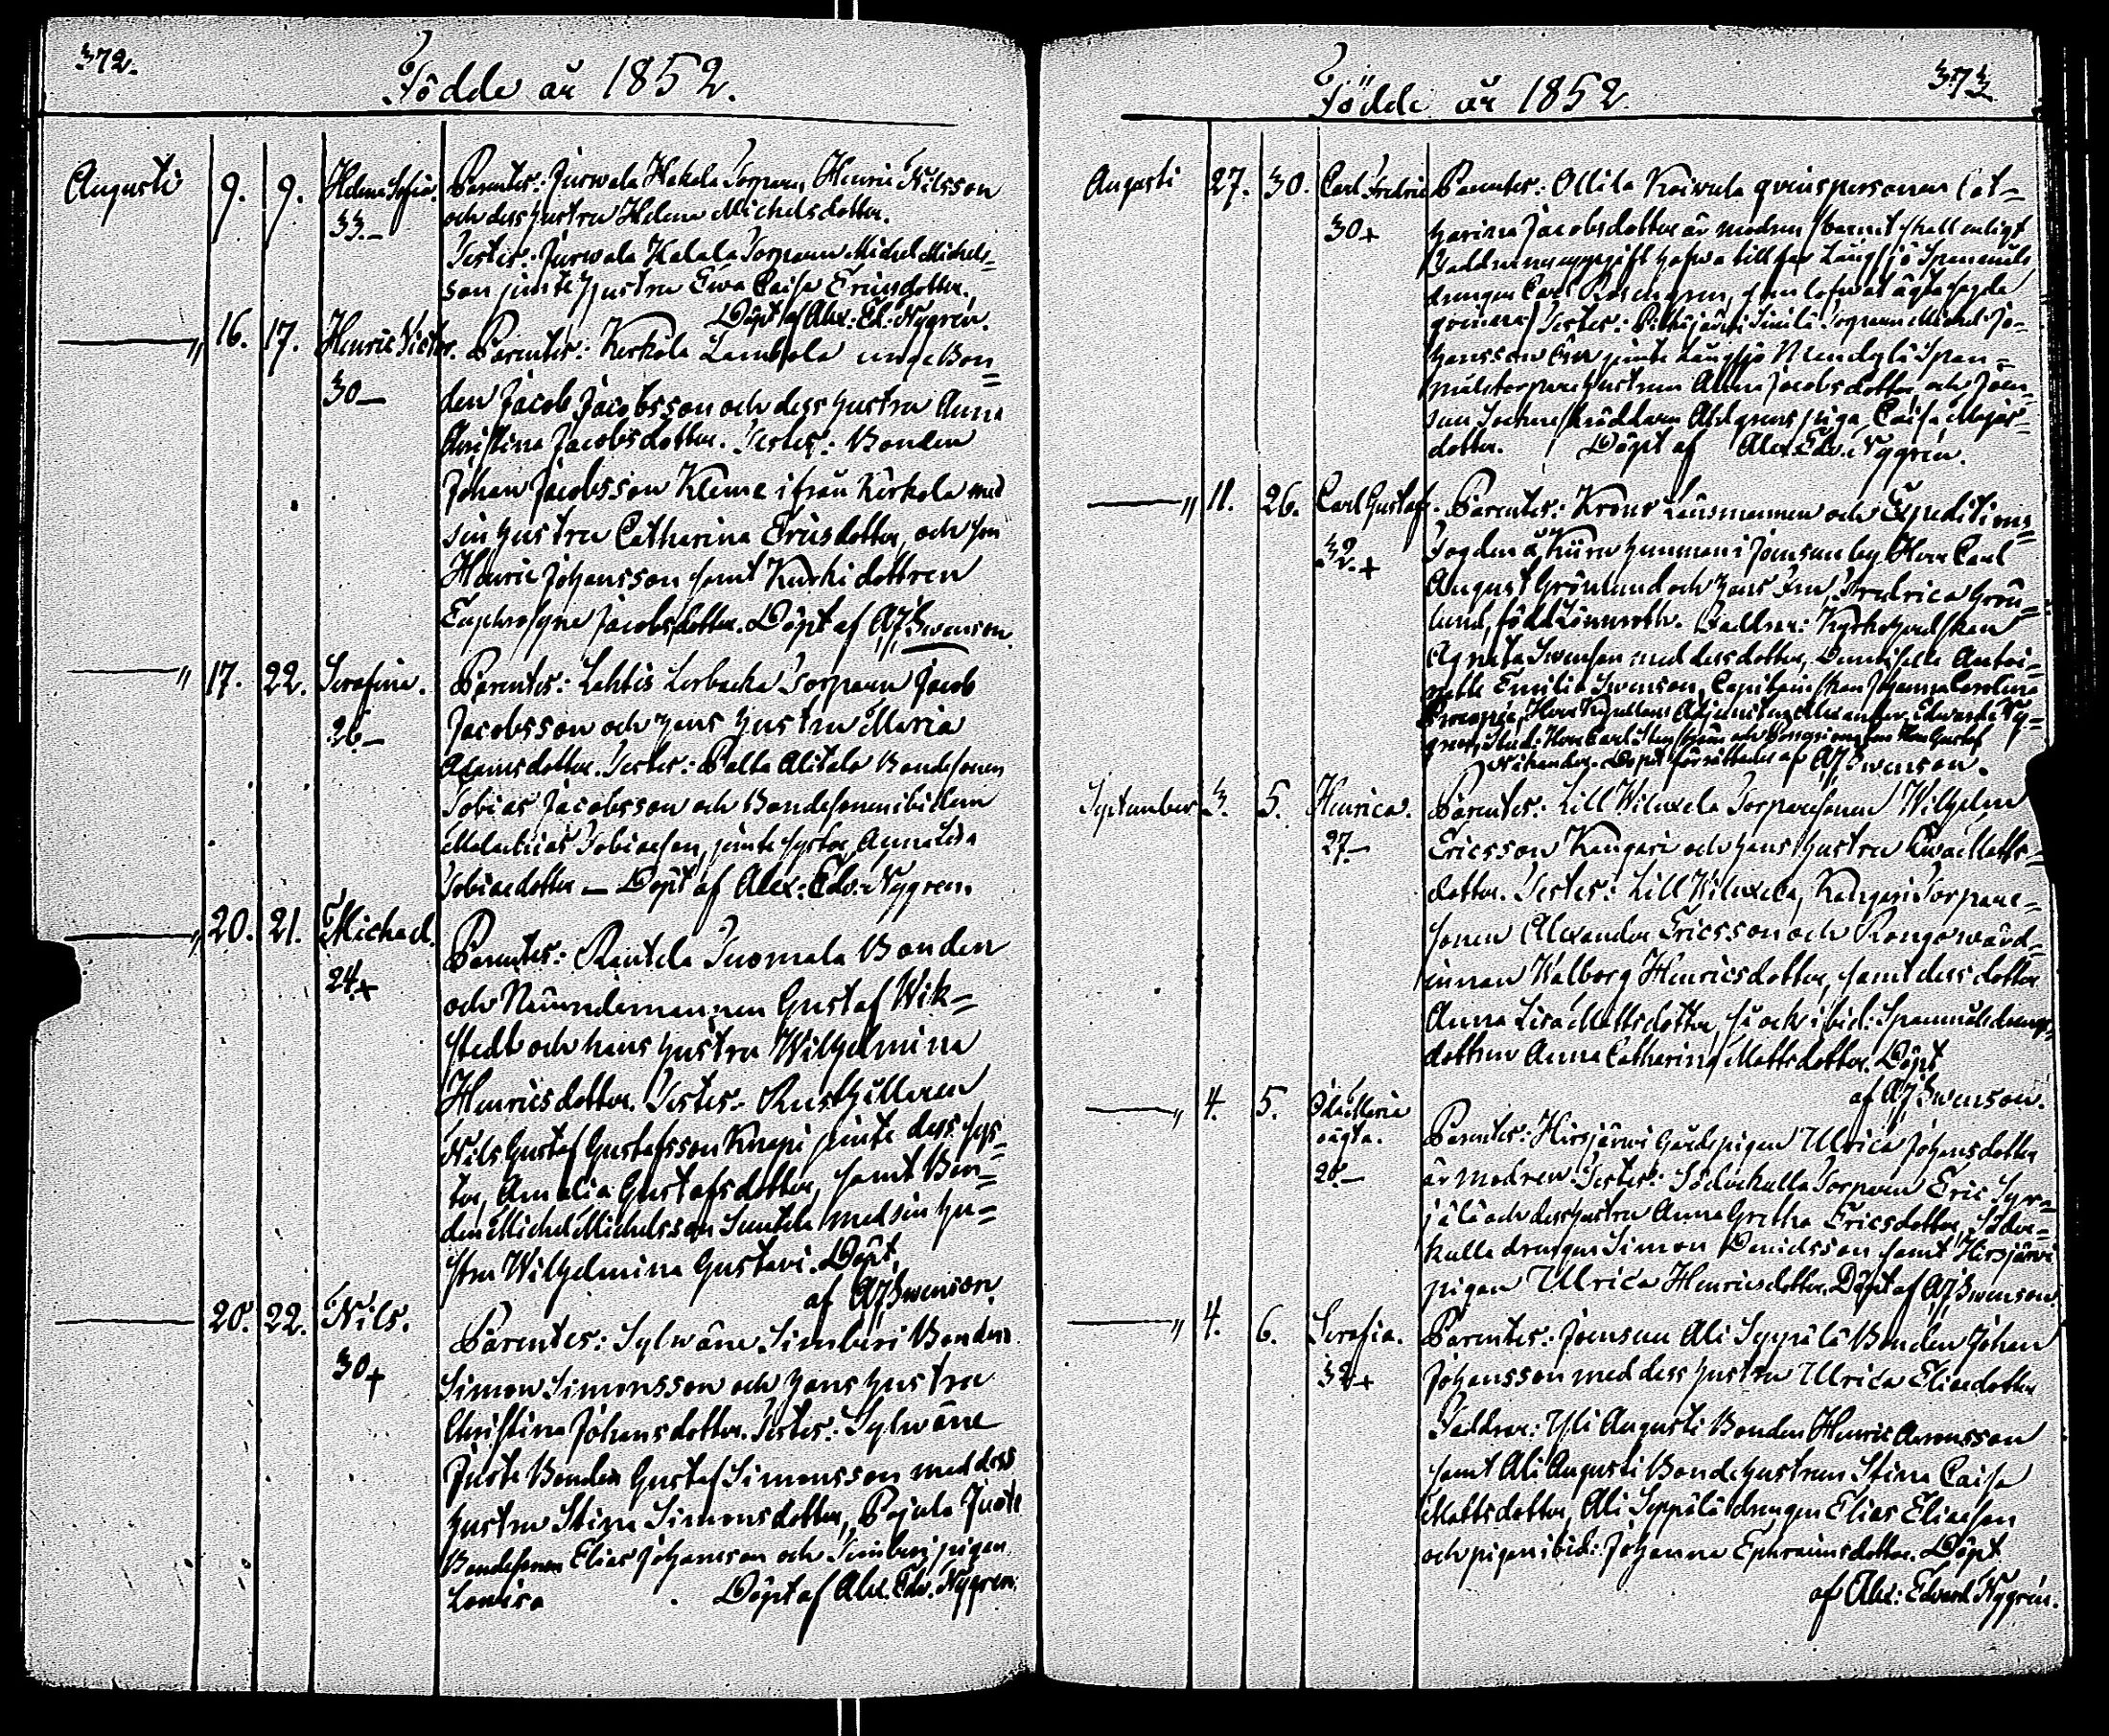 372.
Födde år 1852.
Augusti 9. 9. Helena Sofia. Parentes: Jurwala Hakala Torparen Henric Nilsson
33.– och dess hustru Helena Michelsdotter.
Testes: Jurwala Hakala Torparen Michel Michels-
son jemte hustru Ewa Caisa Ericsdotter.
Döpt af Alex: Ed: Nygren.
—" 16. 17. Henric Victor. Parentes: Kerkola Lambola unge Bon-
30– den Jacob Jacobsson och dess hustru Anna
Christina Jacobsdotter. Testes: Bonden
Johan Jacobsson Kleme ifrån Kerkola med
sin hustru Catharina Ericsdotter, och son
Henric Johansson samt Kurki dottren
Euphrosyne Jacobsdotter. Döpt af AJSwenson
—" 17. 22. Serafina. Parentes: Lahtis Lerbacka Torparen Jacob
26– Jacobsson och hans hustru Maria
Adamsdotter. Testes: Palta Alitalo Bondesonen
Tobias Jacobsson och Bondesonen ibidem
Malachias Tobiasson, jemte syster, Anna Lisa
Tobiaedotter – Döpt af Alex: Edv. Nygren.
—" 20. 21. Michael. Parentes: Rautela Tuomala Bonden
24+ och Nämndemannen Gustaf Wik-
stedt och hans hustru Wilhelmina
Henricsdotter. Testes: Rusthållaren
Nils Gustaf Gustafsson Knapi jemte dess sys-
ter, Amalia Gustafsdotter, samt Bon-
den Michel Michelsson Suutela med sin hu-
stru Wilhelmina Gustavi. Döpt
af AJSwenson
— 20. 22. Nils. Parentes: Sylwäne Simberi Bonden
30+ Simon Simonsson och hans hustru
Christina Johansdotter. Testes: Sylwäne
Juste Bonden Gustaf Simonsson med dess
hustru Stina Simonsdotter, Pajula Juote
Bondesonen Elias Johansson och Simberi pigan
Lovisa Döpt af Alex. Edv. Nygren.
373
Födde år 1852
Augusti 27. 30. Carl Fredric Parentes: Ollila Koivula qvinspersonen Cat-
30+ harina Jacobsdotter är modren /barnet skall enligt
Faddrarnas uppgift hafva till far Långsjö Spanmåls
drengen Carl Rosengren, som lofwat ägta sagde
qvinna/ Testes: Pitkäjärvi Simila Torparen Michel Jo-
hansson jemte Långsjö Nundylä Span-
målstorpare hustrun Anna Jacobsdotter, och Joen-
suu Sockneskräddaren Ahlgrens piga, Caisa Majas-
dotter. Döpt af Alex. Edv. Nygrén.
—" 11. 26. Carl Gustaf. Parentes: Krono Länsmannen och Expeditions
32.+ Fogden å Kuru hemman i Joensuu by Herr Carl
August Grönlund och hans Fru Fredrica Grön-
lund, född Lönnroth. Faddrar: Kyrkoherdskan
Agneta Swenson med dess dotter, Demoiselle Antoi-
nette Emilia Swenson, Capitainskan Johanna Carolina
Herr Capellans Adjuncten Alexander Edward Ny-
gren, Stud: Herr Carl och Herr Gustaf
Döpet förrättades af AJSwenson.
September 3. 5. Henrica. Parentes: Lill Wiluxela Torparesonen Wilhelm
27.– Ericsson Kangari och hans hustru Ewa Matts-
dotter. Testes: Lill Wiluxela, Kangari Torpare-
sonen Alexander Ericsson och Rongowärd-
innan Walborg Henricsdotter, samt dess dotter
Anna Lisa Mattsdotter, så ock ibid: Spanmålsdrengs
dottren Anna Catharina Mattsdotter. Döpt
af AJSwenson.
—" 4. 5. Ida Maria Parentes: Hirsjärwi Gårdspigan Ulrica Johansdotter
oägta. är modren. Testes: Söderkulla Torparen Eric Syr-
28– jälä och dess hustru Anna Gretha Ericsdotter, Söder-
kulla drengen Simon Davidsson samt Hirsjärwi
pigan Ulrica Henricsdotter. Döpt af AJSwenson.
—" 4. 6. Serafia. Parentes: Joensuu Ali Seppälä Bonden Johan
32+ Johansson med dess hustru Ulrica Eliaedotter
Faddrar: Yli Augusti Bonden Henric Aronsson
samt Ali Augusti Bondehustrun Stina Caisa
Mattsdotter, Ali Seppälä drengen Elias Eliasson
och pigan ibid: Johanna Ephraimsdotter. Döpt
af Alex: Edvard Nygrén.